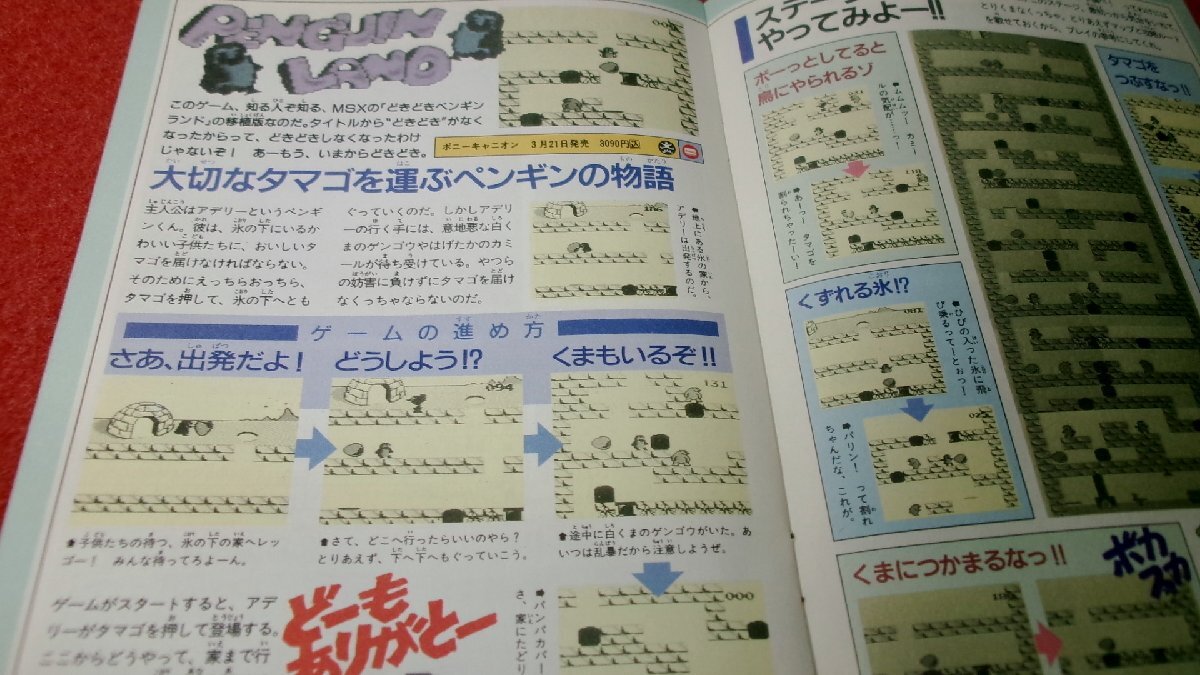 PENGUIN
LAND
このゲーム、知る人ぞ知る、MSXの「どきどきペンギン
ランド」の移植版なのだ。タイトルから“どきどき”がなく
なったからって、どきどきしなくなったわけ
じゃないぞ！ あーもう、いまからどきどき。
ポニーキャニオン 3月21日発売 3090円込
大切なタマゴを運ぶペンギンの物語
主人公はアデリーというペンギ
ンくん。彼は、氷の下にいるか
わいい子供たちに、おいしいタ
マゴを届けなければならない。
そのためにえっちらおっちら、
タマゴを押して、氷の下へとも
ぐっていくのだ。しかしアデリ
ーの行く手には、意地悪な白く
まのゲンゴウやはげたかのカミ
ールが待ち受けている。やつら
の妨害に負けずにタマゴを届け
なくっちゃならないのだ。
地上にある氷の家から、
アデリーは出発するのだ。
ゲームの進め方
さあ、出発だよ！
094
子供たちの待つ、氷の下の家へレッ
ゴー！ みんな待ってろよーん。
どうしよう!?
さて、どこへ行ったらいいのやら？
とりあえず、下へ下へもぐっていこう。
くまもいるぞ!!
131
途中に白くまのゲンゴウがいた。あ
いつは乱暴だから注意しようぜ。
000
ゲームがスタートすると、アデ
リーがタマゴを押して登場する。
ここからどうやって、家まで行
どーも
ありがとー
パンパカパー
さ、家にたどり
やってみよー!!
を載せておくから、プレイの参考にしてくれ。
ボーっとしてると
鳥にやられるゾ
ムムッー カミー
ルの気配が……っ！
あーっ！ タマゴを
割られちゃったーい！
くずれる氷!?
ひびの入った氷に飛
び乗るってーとぉっ！
パリン！ って割れ
ちゃんだな、これが。
くまにつかまるなっ!!
ボカ
スカ
タマゴを
つぶすなっ!!